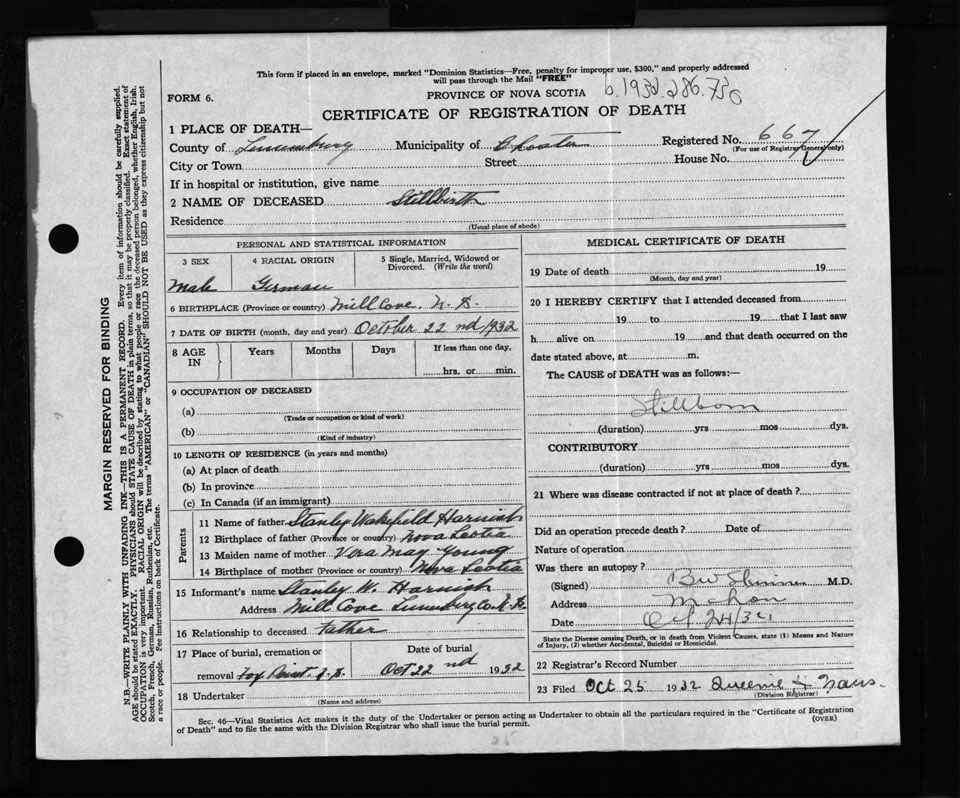 This form if placed in an envelope, marked "Dominion Statistics—Free, penalty for improper use, $300," and properly addressed
will pass through the Mail "FREE"
FORM 6.
PROVINCE OF NOVA SCOTIA b.1932.286.730
CERTIFICATE OF REGISTRATION OF DEATH
1 PLACE OF DEATH—
Registered No. 667
(For use of Registrar General only)
County of Lunenburg Municipality of Chester
City or Town Street House No.
If in hospital or institution, give name
2 NAME OF DECEASED Stillbirth
Residence
(Usual place of abode)
PERSONAL AND STATISTICAL INFORMATION
3 SEX 4 RACIAL ORIGIN 5 Single, Married, Widowed or
Divorced. (Write the word)
Male German
6 BIRTHPLACE (Province or country) Mill Cove, N.S.
7 DATE OF BIRTH (month, day and year) October 22nd 1932
8 AGE IN Years Months Days If less than one day.
hrs. or min.
9 OCCUPATION OF DECEASED
(a)
(Trade or occupation or kind of work)
(b)
(Kind of industry)
10 LENGTH OF RESIDENCE (in years and months)
(a) At place of death
(b) In province
(c) In Canada (if an immigrant)
Parents
11 Name of father Stanley Wakefield Harnish
12 Birthplace of father (Province or country) Nova Scotia
13 Maiden name of mother Vera May Young
14 Birthplace of mother (Province or country) Nova Scotia
15 Informant's name Stanley W. Harnish
Address Mill Cove Lunenburg Co. N.S.
16 Relationship to deceased Father
17 Place of burial, cremation or Date of burial
removal Fox Point N.S. Oct 22nd 1932
18 Undertaker
(Name and address)
MEDICAL CERTIFICATE OF DEATH
19 Date of death 19
(Month, day and year)
20 I HEREBY CERTIFY that I attended deceased from
19 to 19 that I last saw
h alive on 19 and that death occurred on the
date stated above, at m.
The CAUSE of DEATH was as follows:—
Stillborn
(duration) yrs mos dys.
CONTRIBUTORY
(duration) yrs mos dys.
21 Where was disease contracted if not at place of death?
Did an operation precede death? Date of
Nature of operation
Was there an autopsy?
(Signed) M.D.
Address Mahon
Date Oct 24/32
State the Disease causing Death, or in death from Violent Causes, state (1) Means and Nature
of Injury, (2) whether Accidental, Suicidal or Homicidal.
22 Registrar's Record Number
23 Filed Oct 25 1932 Queenie
(Division Registrar)
Sec. 46—Vital Statistics Act makes it the duty of the Undertaker or person acting as Undertaker to obtain all the particulars required in the "Certificate of Registration
of Death" and to file the same with the Division Registrar who shall issue the burial permit. (OVER)
25
MARGIN RESERVED FOR BINDING
N.B.—WRITE PLAINLY WITH UNFADING INK—THIS IS A PERMANENT RECORD. Every item of information should be carefully supplied.
AGE should be stated EXACTLY. PHYSICIANS should STATE CAUSE OF DEATH in plain terms, so that it may be properly classified. Exact statement of
OCCUPATION is very important. RACIAL ORIGIN will be described by stating to what people or race the deceased person belonged, whether English, Irish,
Scotch, French, German, Russian, Ruthenian, etc. The terms "AMERICAN" or "CANADIAN" SHOULD NOT BE USED as they express citizenship but not
a race or people. See instructions on back of Certificate.